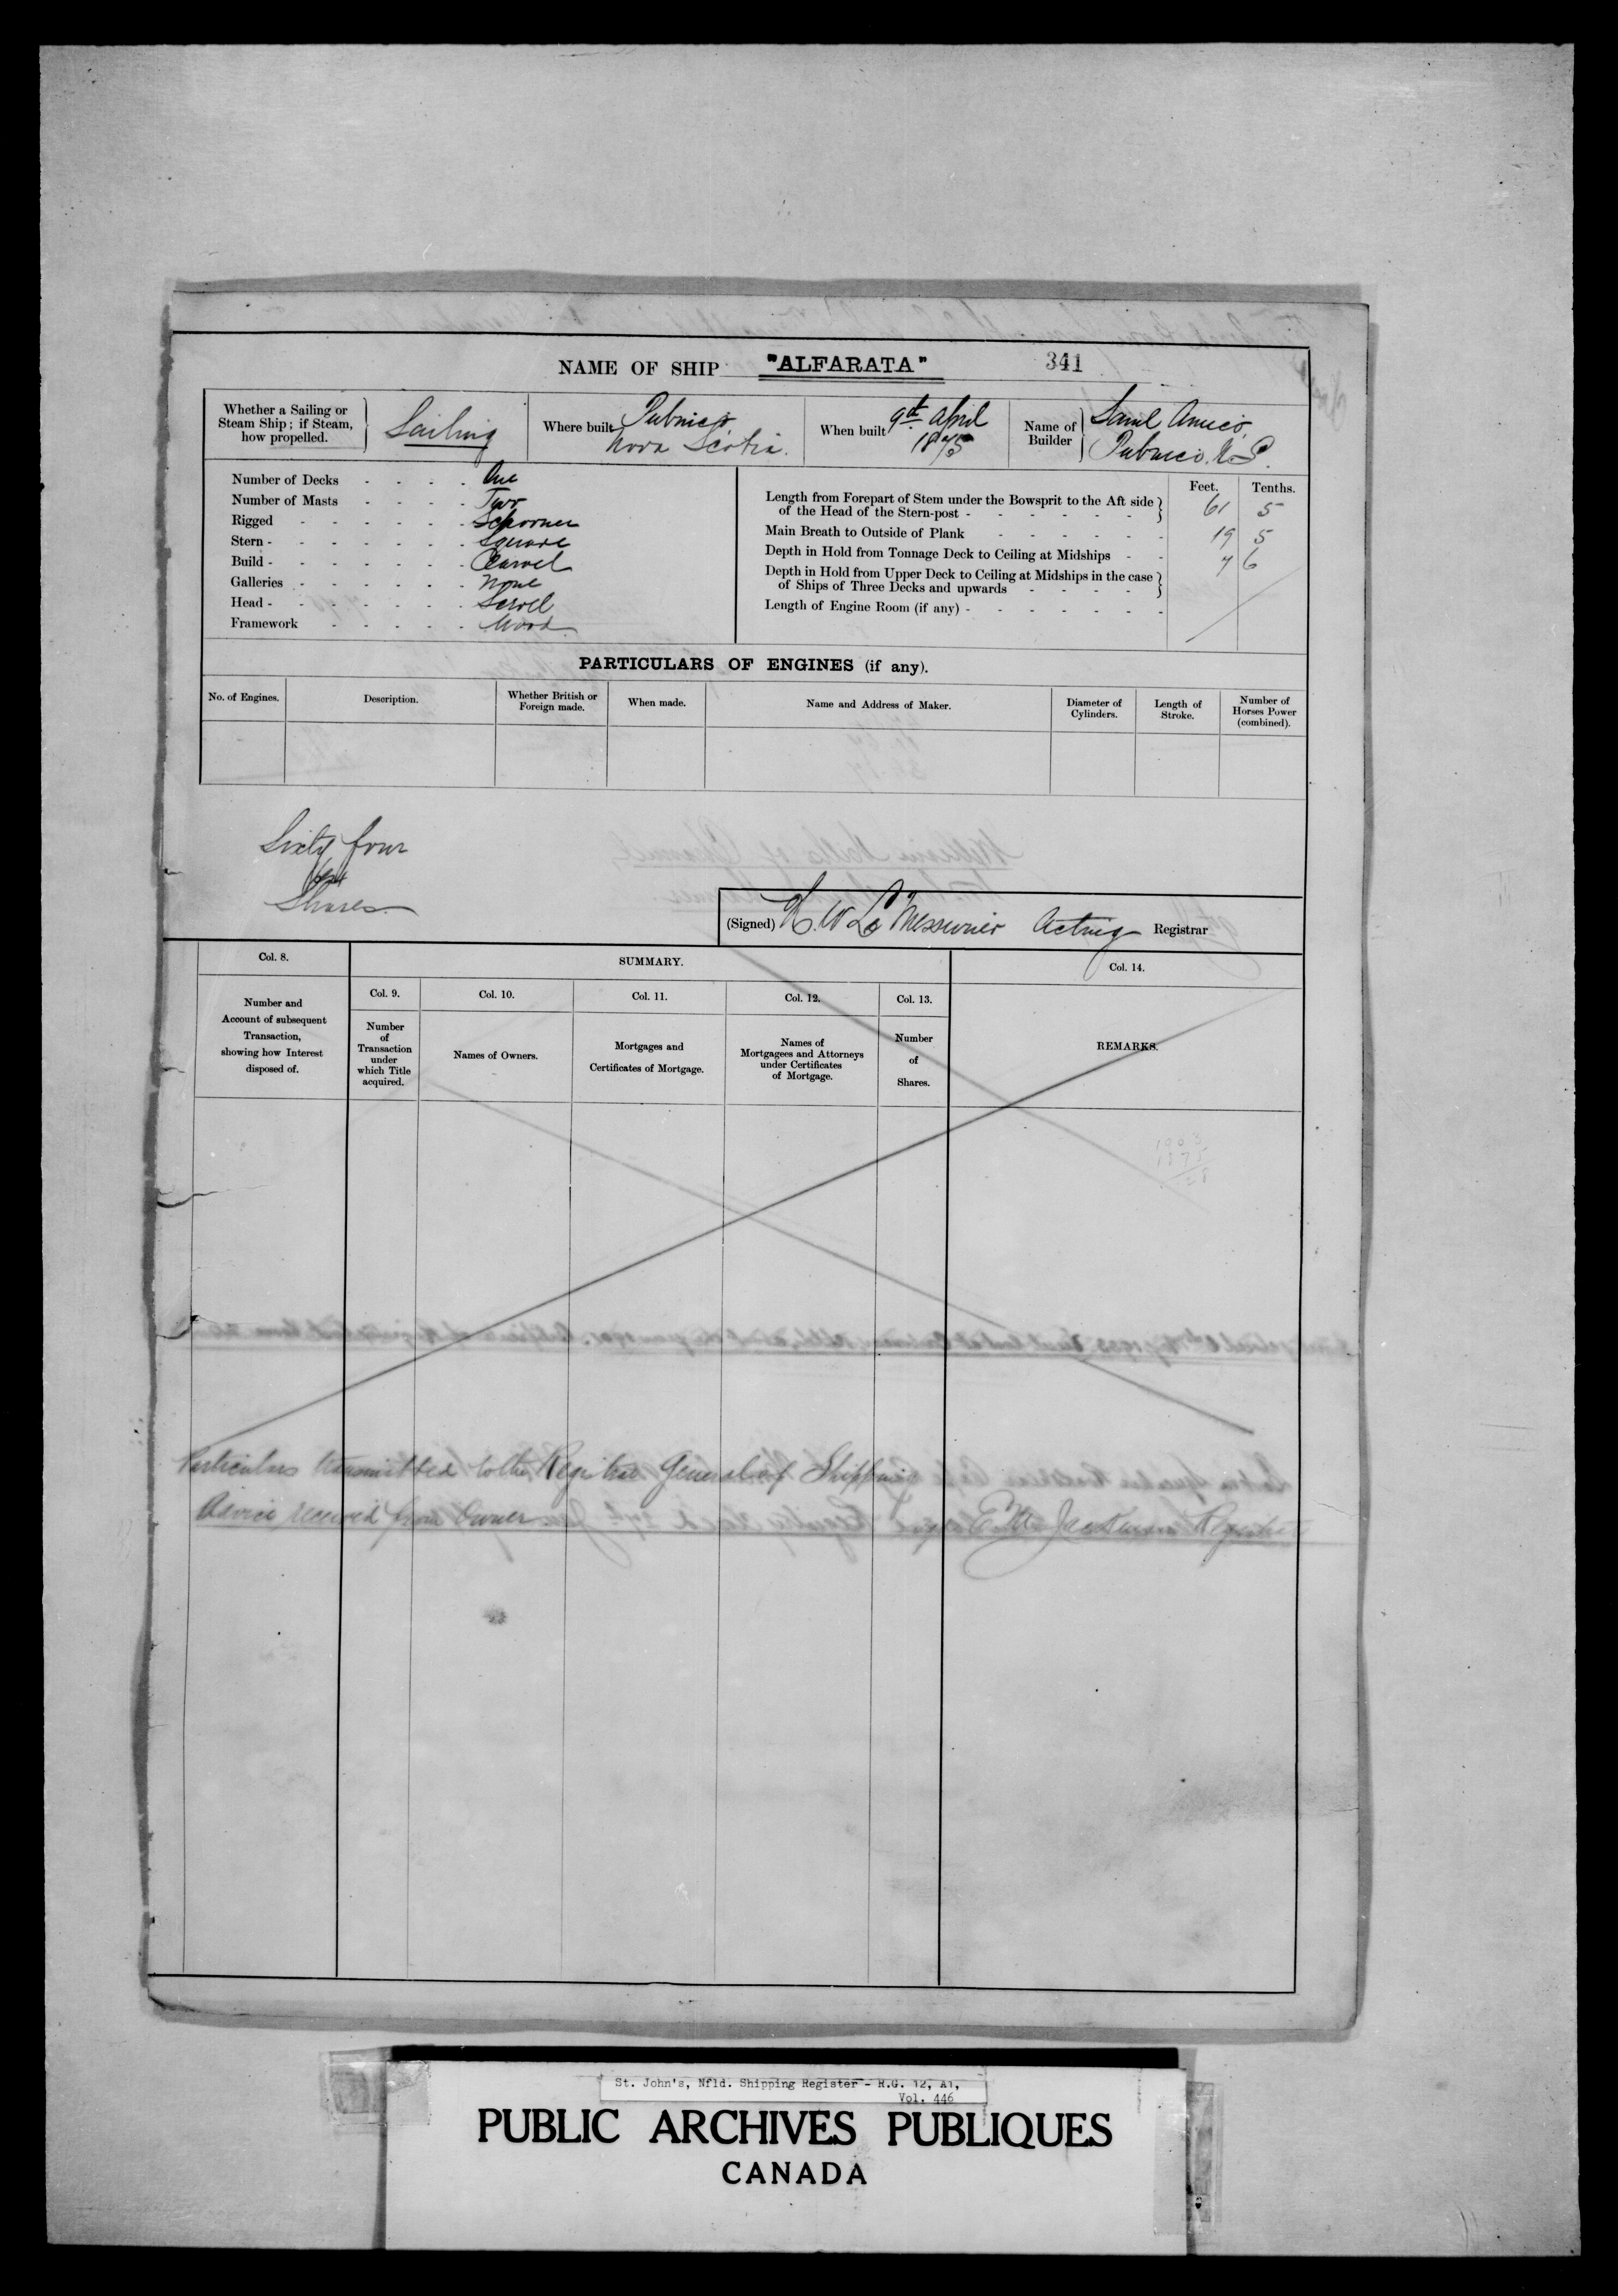 NAME OF SHIP "ALFARATA" 341
Whether a Sailing or Steam Ship; if Steam, how propelled. Sailing
Where built Pubnico Nova Scotia.
When built 9th April 1875
Name of Builder Saml Amico, Pubnico N.S.
Number of Decks - - - - One
Number of Masts - - - - Two
Rigged - - - - - - Schooner
Stern - - - - - - - Square
Build - - - - - - - Carvel
Galleries - - - - - - None
Head - - - - - - - Scroll
Framework - - - - - Wood
Feet. Tenths.
Length from Forepart of Stem under the Bowsprit to the Aft side of the Head of the Stern-post - - - - - - 61 5
Main Breath to Outside of Plank - - - - - - 19 5
Depth in Hold from Tonnage Deck to Ceiling at Midships - - 7 6
Depth in Hold from Upper Deck to Ceiling at Midships in the case of Ships of Three Decks and upwards - - - -
Length of Engine Room (if any) - - - - - - -
PARTICULARS OF ENGINES (if any).
No. of Engines.
Description.
Whether British or Foreign made.
When made.
Name and Address of Maker.
Diameter of Cylinders.
Length of Stroke.
Number of Horses Power (combined).
Sixty four
(64)
Shares
(Signed) H. W. LeMessurier Acting Registrar
Col. 8.
SUMMARY.
Col. 14.
Number and Account of subsequent Transaction, showing how Interest disposed of.
Col. 9.
Number of Transaction under which Title acquired.
Col. 10.
Names of Owners.
Col. 11.
Mortgages and Certificates of Mortgage.
Col. 12.
Names of Mortgagees and Attorneys under Certificates of Mortgage.
Col. 13.
Number of Shares.
REMARKS.
1903
1875
28
Particulars transmitted to the Registrar General of Shipping
Advice received from Owner
Registrar
St. John's, Nfld. Shipping Register - R.G. 12, A1,
Vol. 446
PUBLIC ARCHIVES PUBLIQUES
CANADA